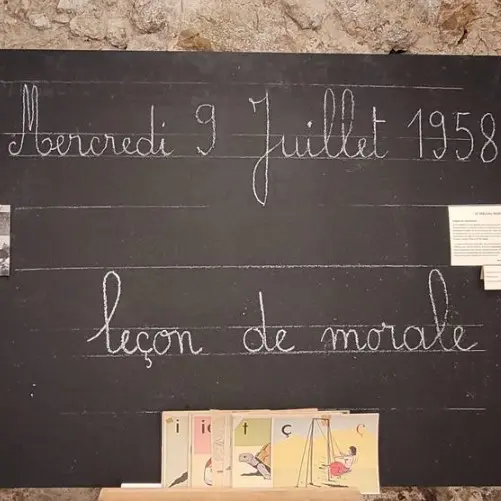 Mercredi 9 Juillet 1958
leçon de morale
i
t
ç
ç